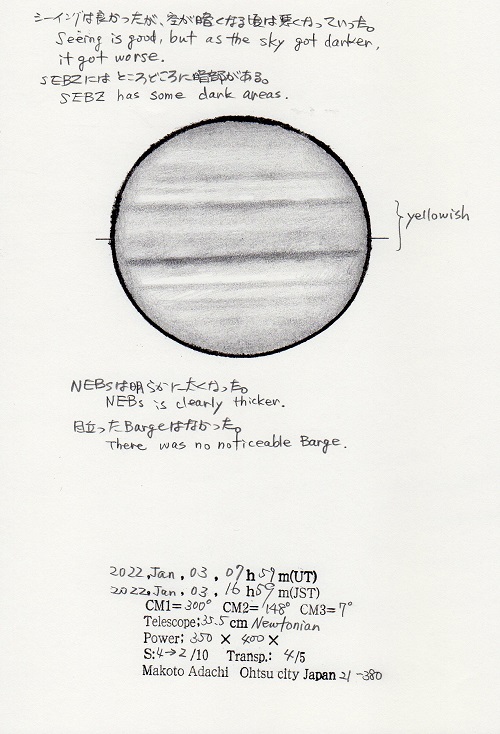 シーイングは良かったが、空が暗くなる頃は悪くなっていった。
Seeing is good, but as the sky got darker,
it got worse.
SEBZにはところどころに暗部がある。
SEBZ has some dark areas.
yellowish
NEBsは明らかに太くなった。
NEBs is clearly thicker.
目立ったBargeはなかった。
There was no noticeable Barge.
2022, Jan, 03, 07h 59m(UT)
2022, Jan, 03, 16h 59m(JST)
CM1= 300° CM2= 148° CM3= 7°
Telescope; 35.5cm Newtonian
Power; 350 × 400 ×
S: 4→2 /10 Transp.: 4/5
Makoto Adachi Ohtsu city Japan 21-380